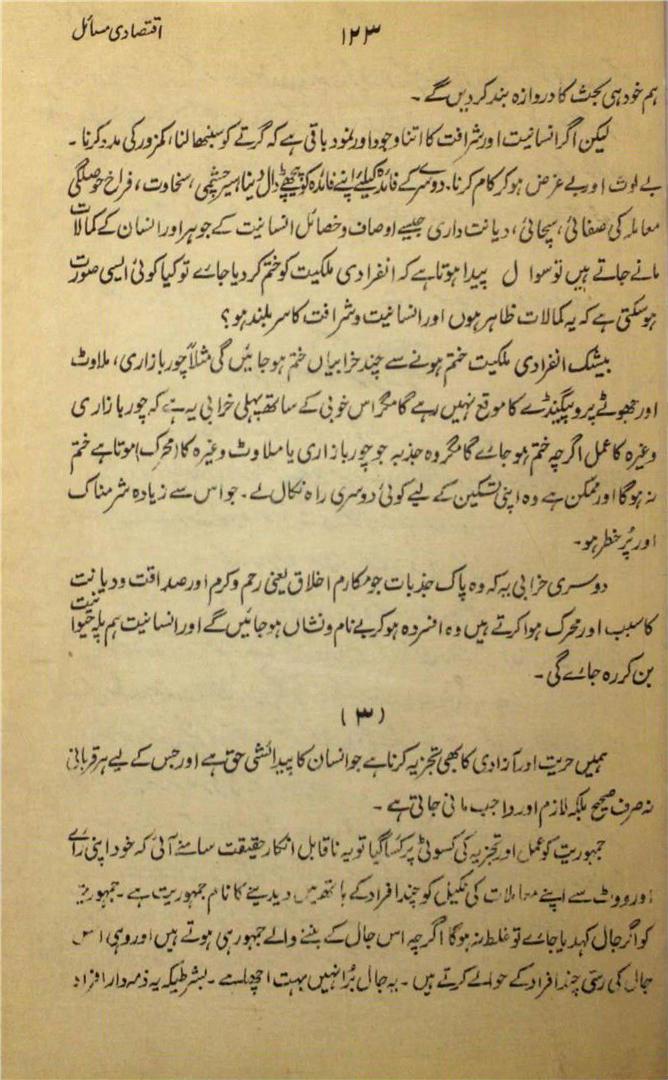 ۱۲۳
اقتصادی مسائل
ہم خود ہی بحث کا دروازہ بند کر دیں گے ۔
لیکن اگر انسانیت اور شرافت کا اتنا وجود اور نمود باقی ہے کہ گرتے کو سنبھالنا، کمزور کی مدد کرنا ۔
بے لوث اور بے غرض ہو کر کام کرنا۔ دوسرے کے فائدہ کیلئے اپنے فائدہ کو پیچھے ڈال دینا، سیر چشمی، سخاوت، فراخ حوصلگی
معاملہ کی صفائی، سچائی، دیانت داری جیسے اوصاف و خصائل انسانیت کے جوہر اور انسان کے کمالات
مانے جاتے ہیں تو سوال پیدا ہوتا ہے کہ انفرادی ملکیت کو ختم کر دیا جائے تو کیا کوئی ایسی صورت
ہو سکتی ہے کہ یہ کمالات ظاہر ہوں اور انسانیت و شرافت کا سر بلند ہو؟
بیشک انفرادی ملکیت ختم ہونے سے چند خرابیاں ختم ہو جائیں گی مثلاً چور بازاری، ملاوٹ
اور جھوٹے پروپیگنڈے کا موقع نہیں رہے گا مگر اس خوبی کے ساتھ پہلی خرابی یہ ہے کہ چور بازاری
وغیرہ کا عمل اگرچہ ختم ہو جائے گا مگر وہ جذبہ جو چور بازاری یا ملاوٹ وغیرہ کا (محرک) ہوتا ہے ختم
نہ ہوگا اور ممکن ہے وہ اپنی تسکین کے لیے کوئی دوسری راہ نکال لے ۔ جو اس سے زیادہ شرمناک
اور پُر خطر ہو۔
دوسری خرابی یہ کہ وہ پاک جذبات جو مکارم اخلاق یعنی رحم و کرم اور صداقت و دیانت
کا سبب اور محرک ہوا کرتے ہیں وہ افسردہ ہو کر بے نام و نشاں ہو جائیں گے اور انسانیت ہم پلہ حیوانیت
بن کر رہ جائے گی ۔
(۳)
ہمیں حریت اور آزادی کا بھی تجزیہ کرنا ہے جو انسان کا پیدائشی حق ہے اور جس کے لیے ہر قربانی
نہ صرف صحیح بلکہ لازم اور واجب مانی جاتی ہے ۔
جمہوریت کو عمل اور تجزیہ کی کسوٹی پر کسا گیا تو یہ ناقابل انکار حقیقت سامنے آئی کہ خود اپنی رائے
اور ووٹ سے اپنے معاملات کی نکیل کو چند افراد کے ہاتھ میں دیدینے کا نام جمہوریت ہے ۔ جمہوریت
کو اگر جال کہہ دیا جائے تو غلط نہ ہوگا اگرچہ اس جال کے بننے والے جمہور ہی ہوتے ہیں اور وہی اس
جال کی رسّی چند افراد کے حوالے کرتے ہیں ۔ یہ جال بُرا نہیں بہت اچھا ہے ۔ بشرطیکہ یہ ذمہ دار افراد